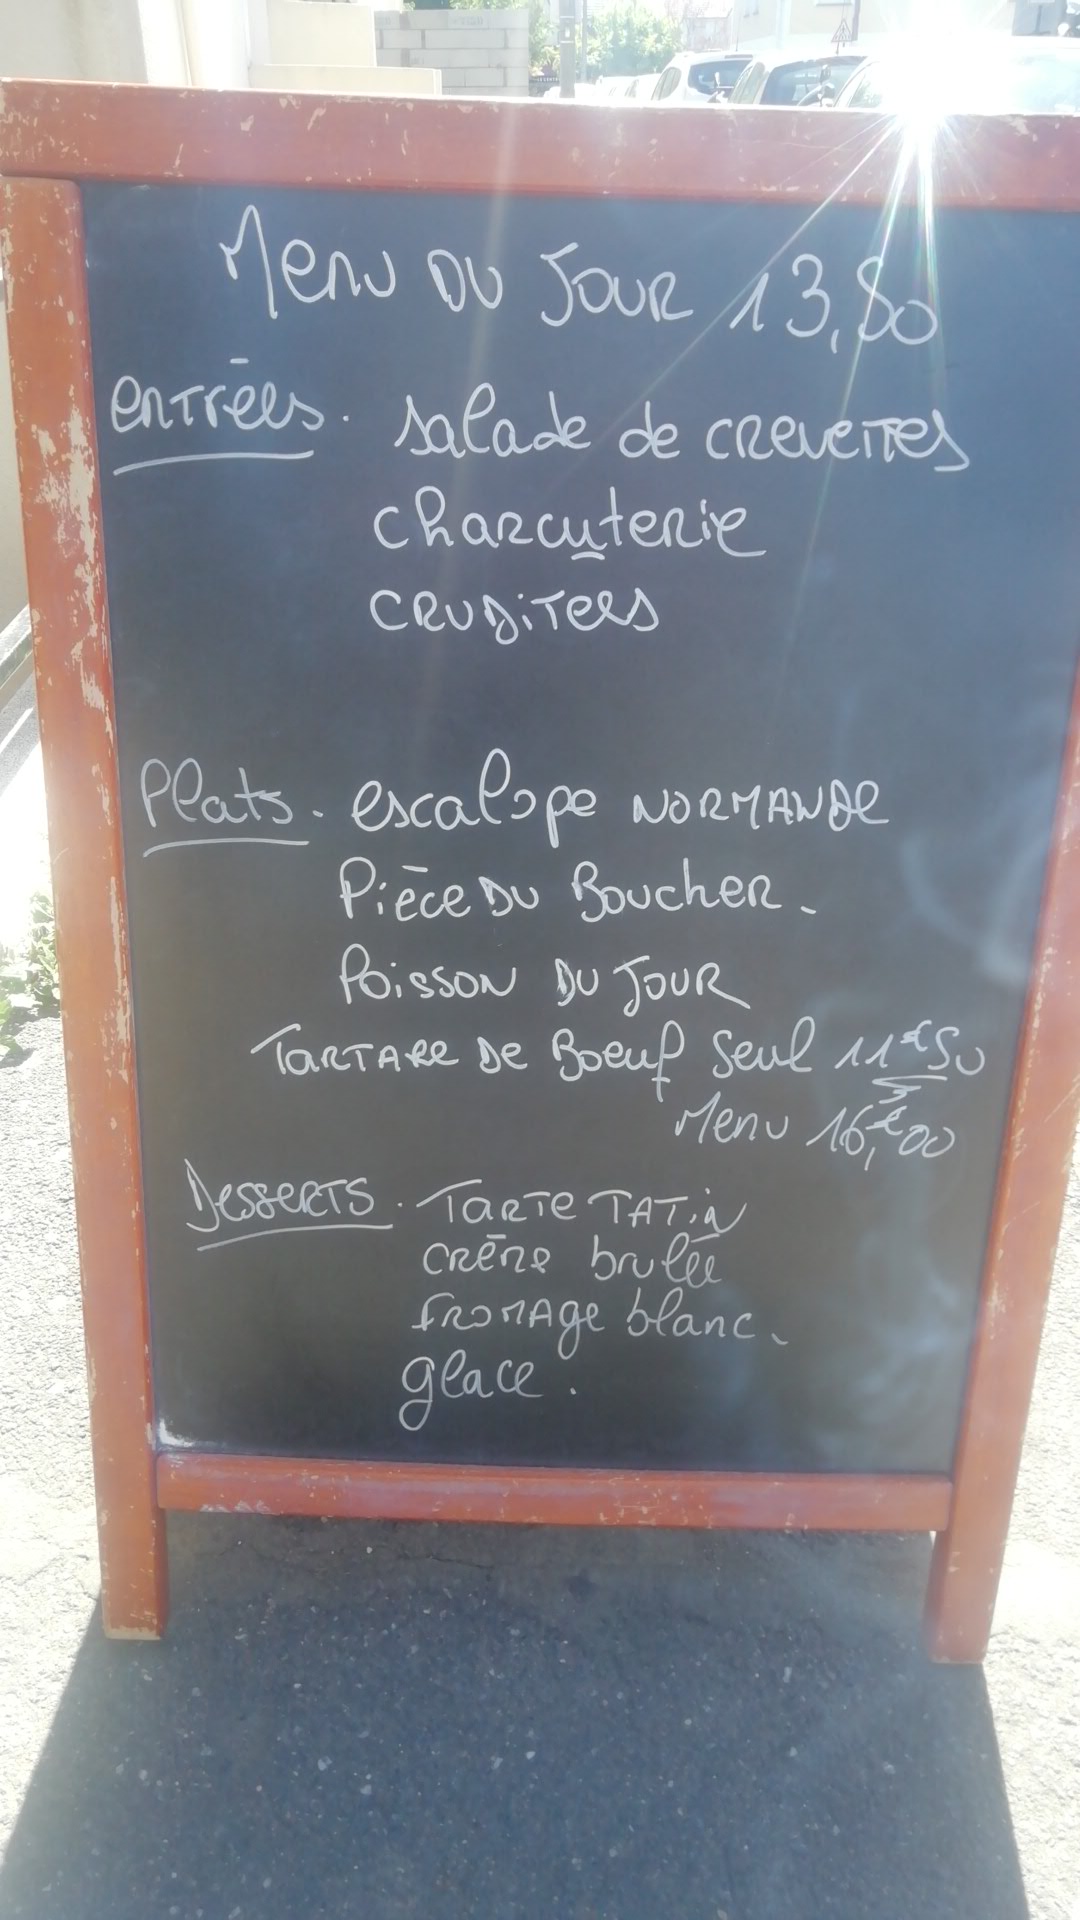 Menu DU JOUR 13,50
entrées. salade de CREVETTES
charcuterie
CRUDiTeES
Plats. escalope NORMANDE
Pièce DU Boucher.
Poisson DU JOUR
TARTARE De Boeuf Seul 11€50
Menu 16,€00
Desserts. TARTE TATiN
crème brulée
FROMAge blanc.
glace.